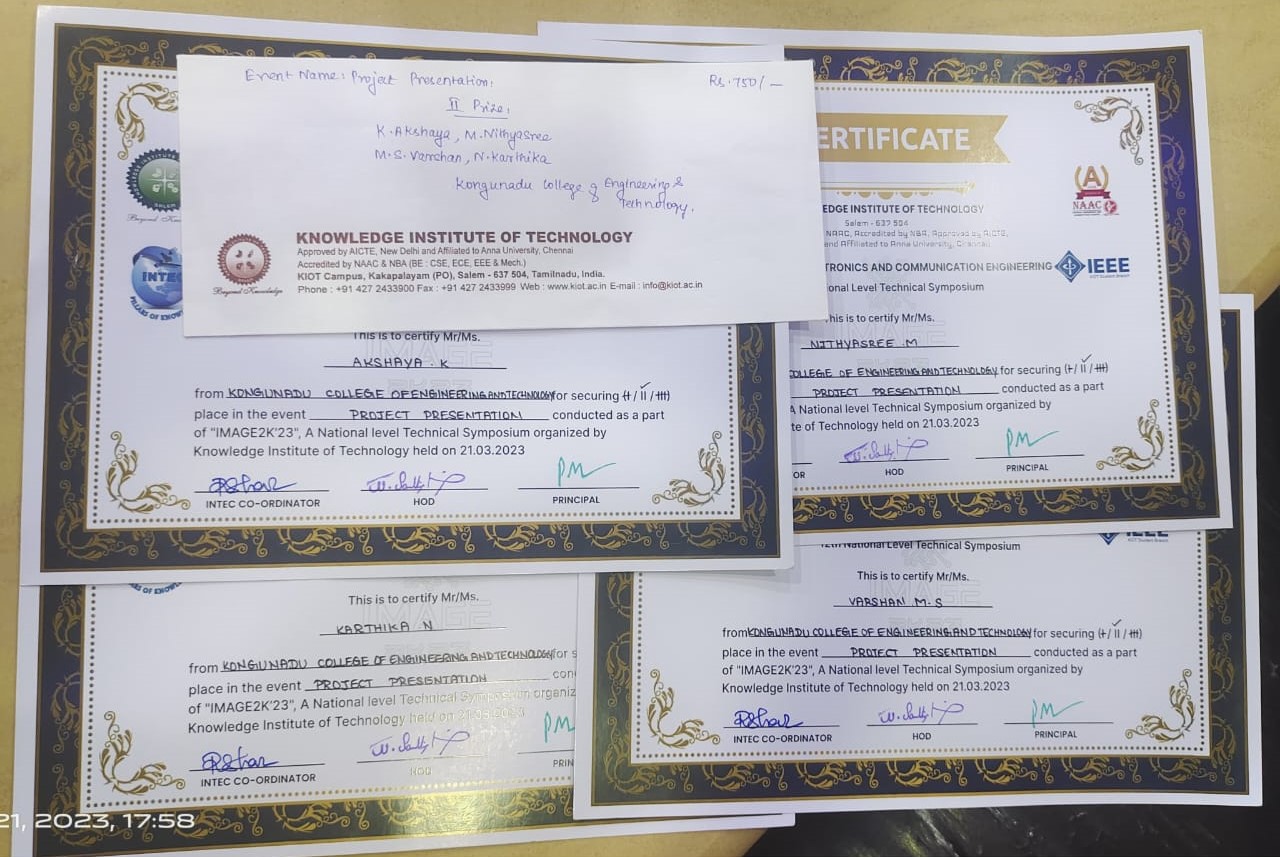 Event Name: Project Presentation.
Rs. 750/-
II Prize.
K. Akshaya, M. Nithyasree
M.S. Varshan, N. Karthika
Kongunadu College of Engineering &
Technology.
KNOWLEDGE INSTITUTE OF TECHNOLOGY
Approved by AICTE, New Delhi and Affiliated to Anna University, Chennai
Accredited by NAAC & NBA (BE : CSE, ECE, EEE & Mech.)
KIOT Campus, Kakapalayam (PO), Salem - 637 504, Tamilnadu, India.
Phone : +91 427 2433900 Fax : +91 427 2433999 Web : www.kiot.ac.in E-mail : info@kiot.ac.in
Beyond Knowledge
INTEC
PILLARS OF KNOW
This is to certify Mr/Ms.
AKSHAYA . K
from KONGUNADU COLLEGE OF ENGINEERING AND TECHNOLOGY for securing (I / II / III)
place in the event PROJECT PRESENTATION conducted as a part
of "IMAGE2K'23", A National level Technical Symposium organized by
Knowledge Institute of Technology held on 21.03.2023
INTEC CO-ORDINATOR
HOD
PRINCIPAL
ERTIFICATE
NAAC
EDGE INSTITUTE OF TECHNOLOGY
Salem - 637 504
NAAC, Accredited by NBA, Approved by AICTE,
and Affiliated to Anna University, Chennai
TRONICS AND COMMUNICATION ENGINEERING
IEEE
KIOT Student Branch
onal Level Technical Symposium
his is to certify Mr/Ms.
NITHYASREE .M
COLLEGE OF ENGINEERING AND TECHNOLOGY for securing (I / II / III)
PROJECT PRESENTATION conducted as a part
A National level Technical Symposium organized by
te of Technology held on 21.03.2023
OR
HOD
PRINCIPAL
This is to certify Mr/Ms.
KARTHIKA N
from KONGUNADU COLLEGE OF ENGINEERING AND TECHNOLOGY for s
place in the event PROJECT PRESENTATION con
of "IMAGE2K'23", A National level Technical Symposium organiz
Knowledge Institute of Technology held on 21.03.2023
INTEC CO-ORDINATOR
HOD
PRIN
12th National Level Technical Symposium
IEEE
KIOT Student Branch
This is to certify Mr/Ms.
VARSHAN .M.S
from KONGUNADU COLLEGE OF ENGINEERING AND TECHNOLOGY for securing (I / II / III)
place in the event PROJECT PRESENTATION conducted as a part
of "IMAGE2K'23", A National level Technical Symposium organized by
Knowledge Institute of Technology held on 21.03.2023
INTEC CO-ORDINATOR
HOD
PRINCIPAL
21, 2023, 17:58